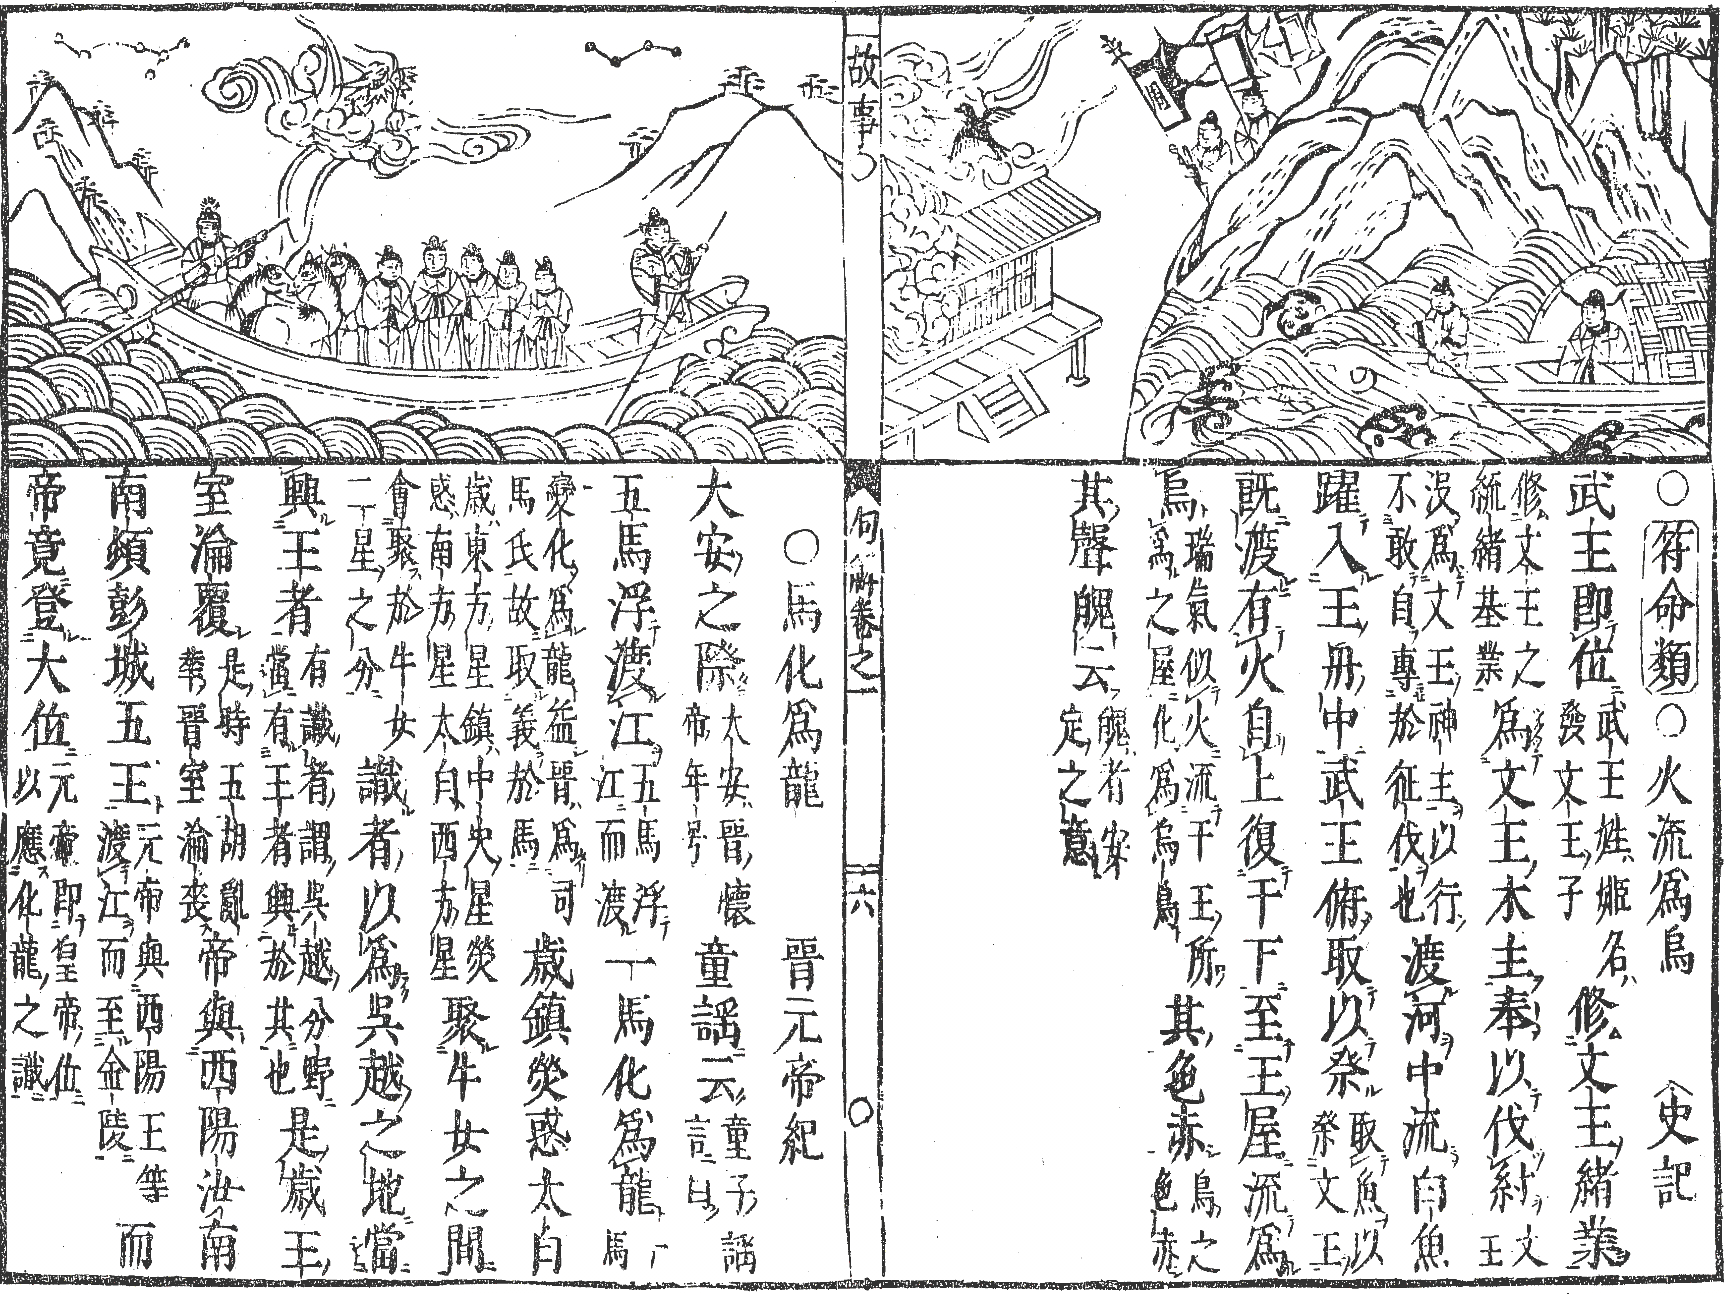 周
○符命類○火流爲烏 史記
武王即位武王姓姬名發文王子修文王緒業
修文王之統緒基業爲文王木主奉以伐紂文王
沒爲文王神主以行不敢自專於征伐也渡河中流白魚
躍入王舟中武王俯取以祭取魚以祭文王
既渡有火自上復于下至王屋流爲
烏瑞氣似火流于王所爲之屋化爲烏鳥其色赤烏之色赤
其聲魄云魄者安定之意
故事
句解卷之一
六
○馬化爲龍 晉元帝紀
大安之際太安晉懷帝年号童謡云童子謡言曰
五馬浮渡江五馬浮江而渡一馬化爲龍一馬
變化爲龍蓋晉爲司馬氏故取義於馬歳鎮熒惑太白
歳東方星鎮中央星熒惑南方星太白西方星聚牛女之間
會聚於牛女二星之分識者以爲呉越之地當
興王者有識者謂呉越分野當有王者興於其也是歳王
室淪覆是時五胡亂華晉室淪喪帝與西陽汝南
南頓彭城五王元帝與西陽王等渡江而至金陵而
帝竟登大位元帝即皇帝位以應化龍之識